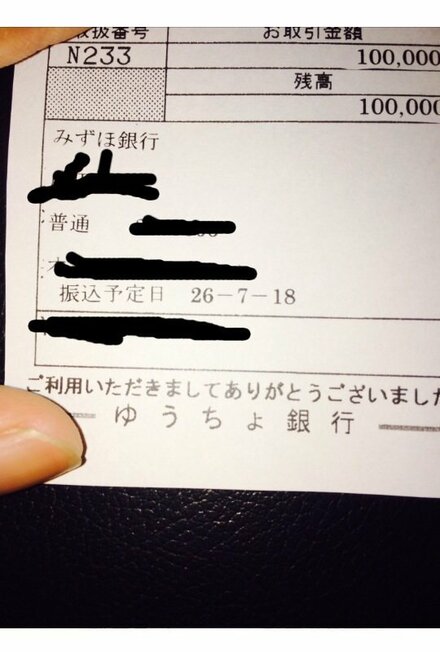 取扱番号 お取引金額
N233 100,000
残高
100,000
みずほ銀行
普通
振込予定日 26-7-18
ご利用いただきましてありがとうございました
ゆうちょ銀行